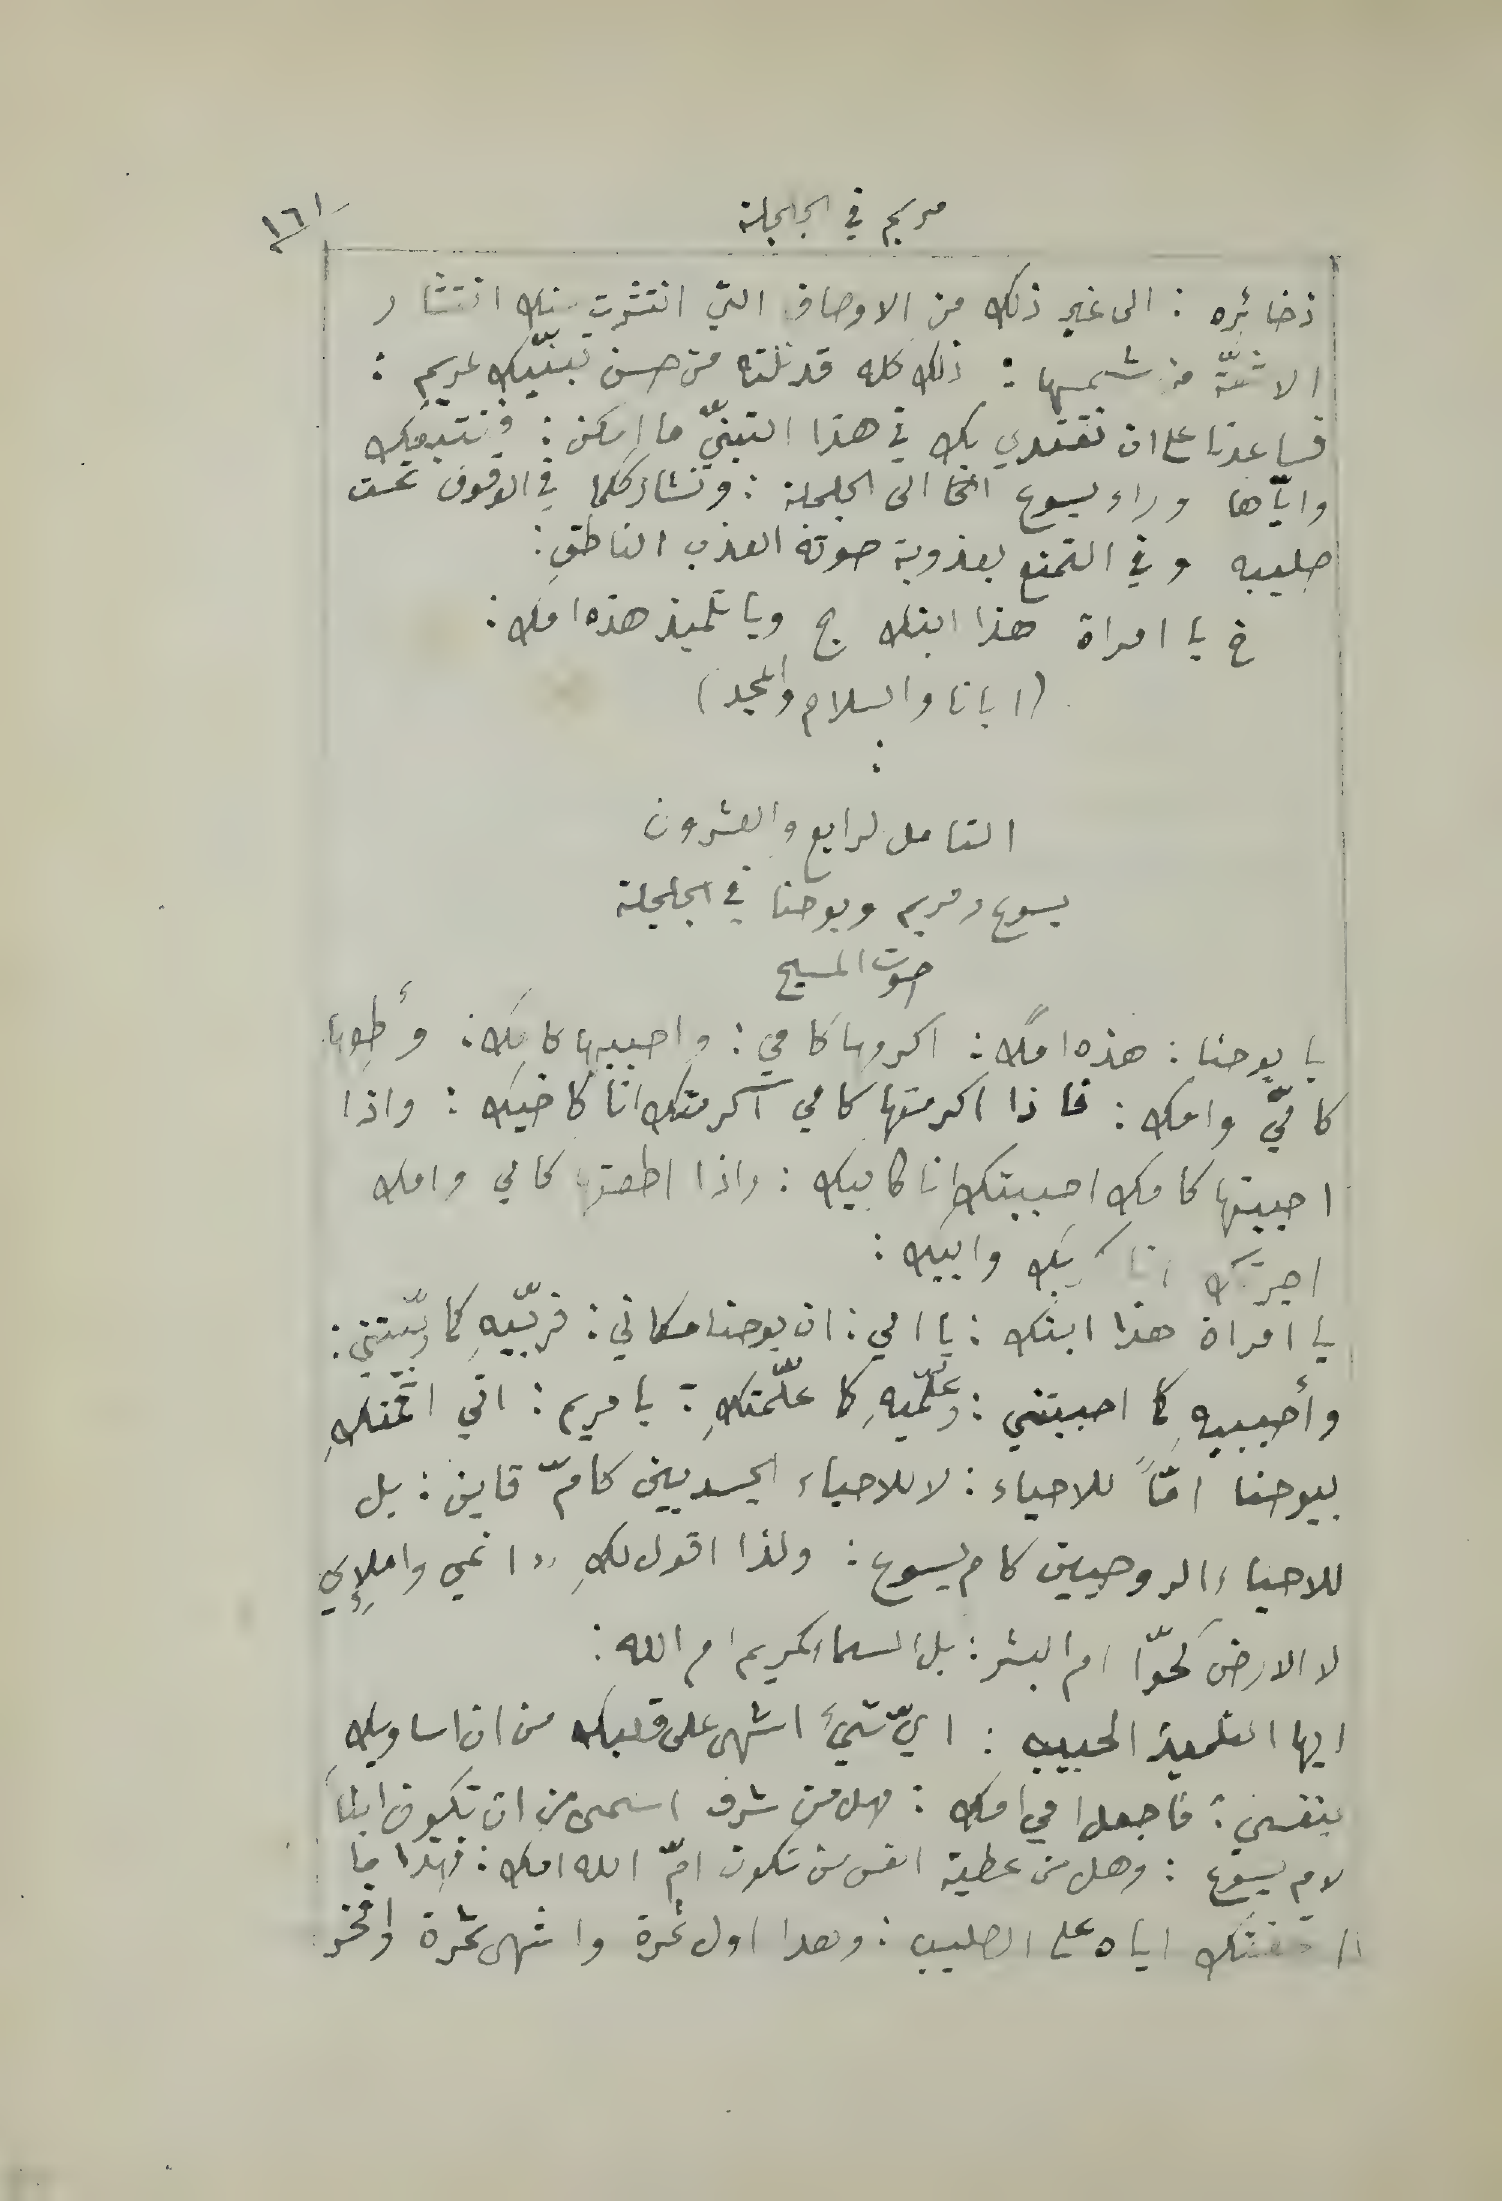 مريم في الجلجلة
١٦١
ذخائره : الى غير ذلك من الاوصاف التي انتثرت منك انتثار
الاشعّة من شمسها : ذلك كله قد نلته من حسن تبنّيك لمريم :
فساعدنا على ان نقتدي بك في هذا التبنّي ما امكن : فنتبعك
وايّاها وراء يسوع الى الجلجلة : ونشارككما في الوقوف تحت
صليبه وفي التمتع بعذوبة صوته العذب الناطق :
خ يا امراة هذا ابنك ج ويا تلميذ هذه امك :
(ابانا والسلام والمجد)
:
التامل لرابع والعشرون
يسوع ومريم ويوحنا في الجلجلة
صوت المسيح
يا يوحنا : هذه امّك : اكرمها كامي : واحببها كامك : وأطعها
كامّي وامك : فاذا اكرمتها كامي اكرمتك انا كاخيك : واذا
احببتها كامك احببتك انا كابيك : واذا اطعتها كامي وامك
اجرتك انا كربك وابيك :
يا امراة هذا ابنك : يا امي : ان يوحنا مكاني : فربّيهِ كما ربّيتني :
وأحببيهِ كما احببتني : وعلّميهِ كما علّمتكِ : يا مريم : اني اقمتكِ
بيوحنا امّاً للاحياء : لا للاحياء الجسديين كامّ قاين : بل
للاحياء الروحيين كام يسوع : ولذا اقول لكِ " انمي واملإي
لا الارض كحوّا ام البشر : بل السماء كمريم ام الله :
ايها التلميذ الحبيب : ايّ شيءٍ اشهى على قلبك من ان اساويك
بنفسي : فاجعل امي امك : فهل من شرف اسمى من ان تكون ابناً
لام يسوع : وهل من عطية انفس من تكون امّ الله امك : فهذا ما
اتحفتك اياه على الصليب : وهذا اول ثمرة واشهى ثمرة وافخر